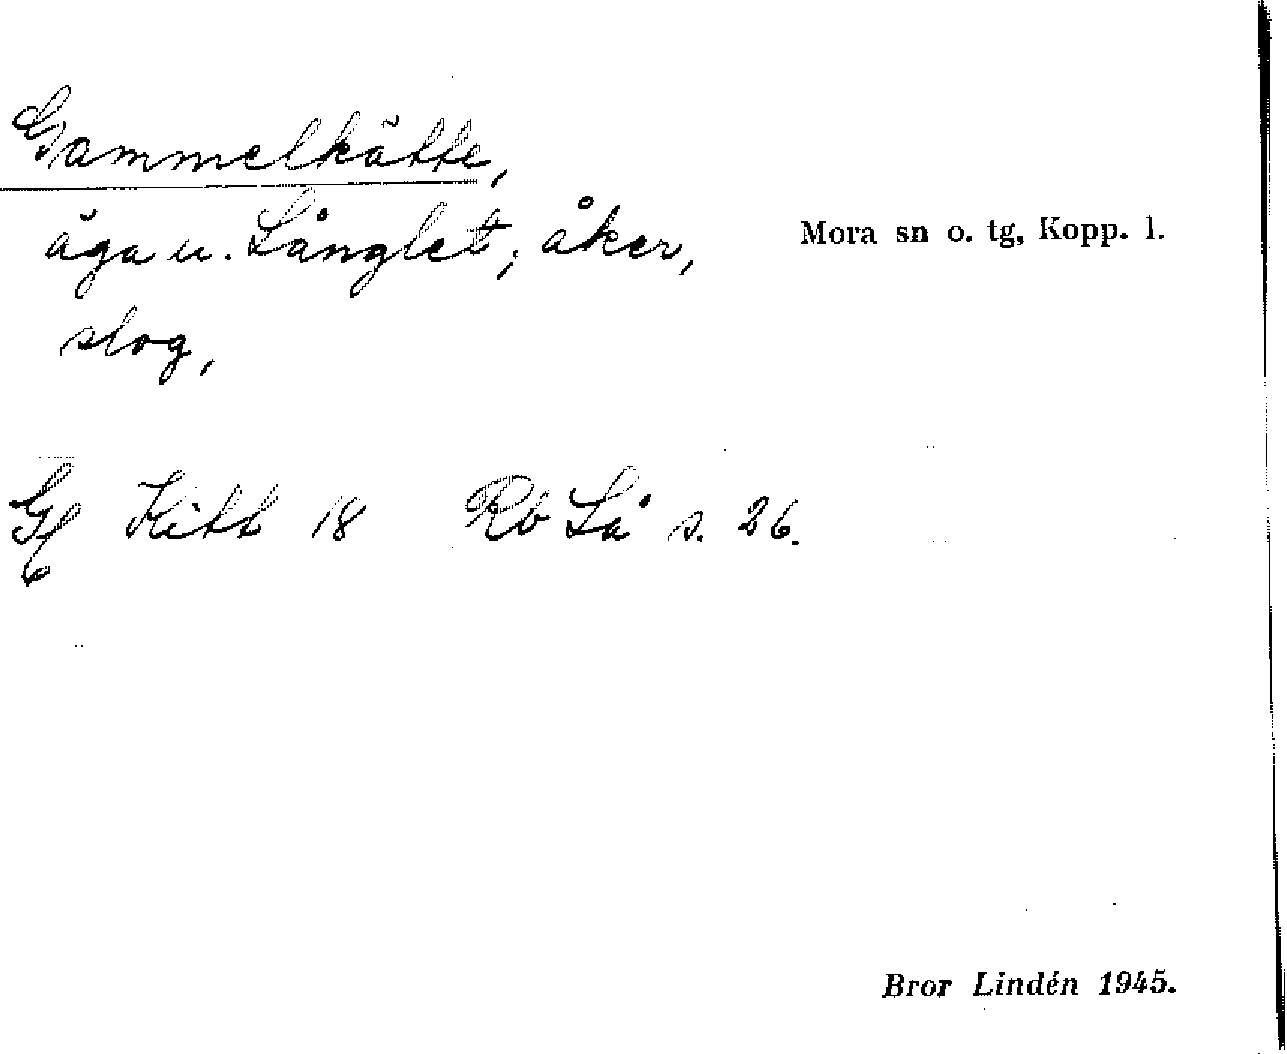 Gammelkätte,
äga u. Långlet; åker,
slog,
Mora sn o. tg, Kopp. l.
Kätt 18 Rb Lå s. 26.
Bror Lindén 1945.